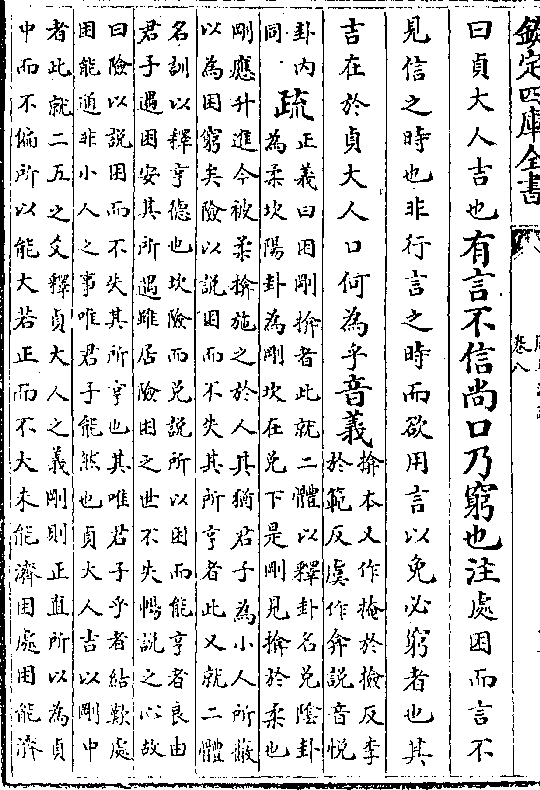 欽定四庫全書
卷八
曰貞大人吉也有言不信尚口乃窮也注處困而言不
見信之時也非行言之時而欲用言以免必窮者也其
吉在於貞大人口何為乎音義
揜本又作掩於檢反李
於範反虞作弇説音悦
卦内
同
疏
正義曰困剛揜者此就二體以釋卦名兊陰卦
為柔坎陽卦為剛坎在兊下是剛見揜於柔也
剛應升進今被柔揜施之於人其猶君子為小人所蔽
以為困窮矣險以説困而不失其所亨者此又就二體
名訓以釋亨德也坎險而兊説所以困而能亨者良由
君子遇困安其所遇雖居險困之世不失暢説之心故
曰險以説困而不失其所亨也其唯君子乎者結歎處
困能通非小人之事唯君子能然也貞大人吉以剛中
者此就二五之爻釋貞大人之義剛則正直所以為貞
中而不偏所以能大若正而不大未能濟困處困能濟